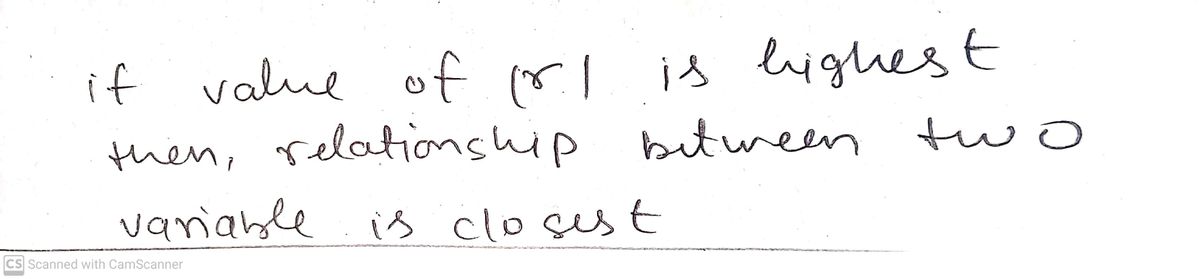 if value of |r| is highest
then, relationship between two
variable is closest
CS Scanned with CamScanner